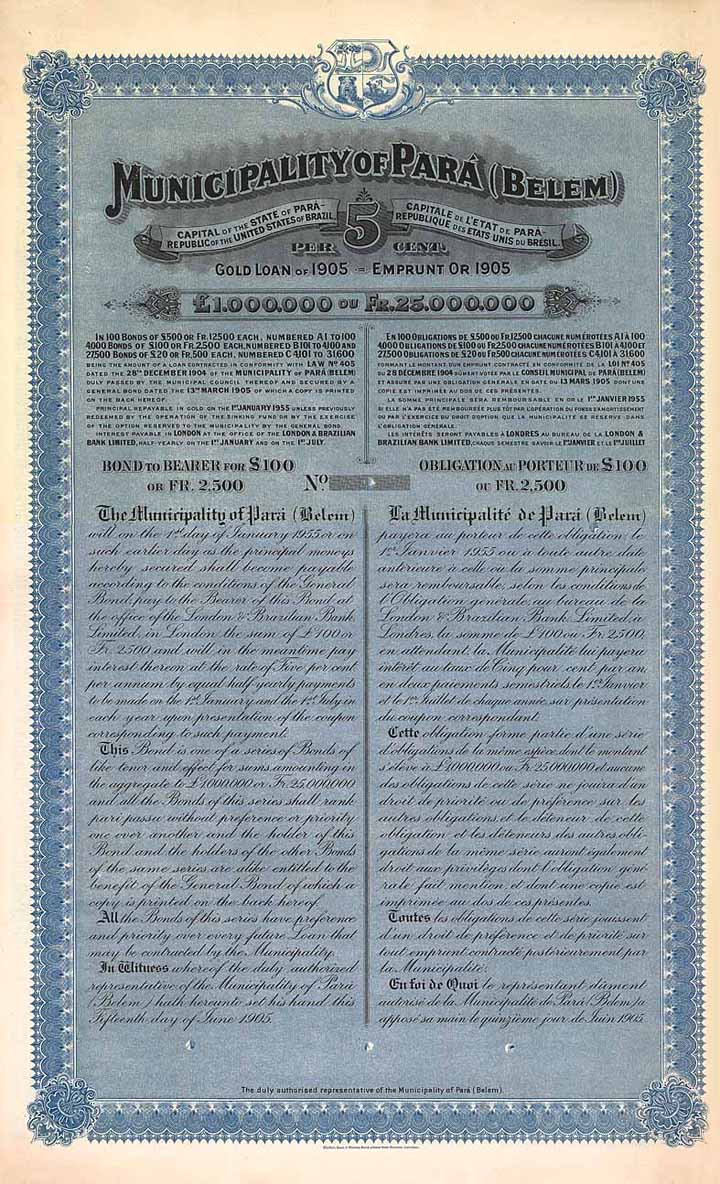 MUNICIPALITY OF PARÁ (BELEM)
CAPITAL OF THE STATE OF PARÁ-
REPUBLIC OF THE UNITED STATES OF BRAZIL
5
PER CENT.
CAPITALE DE L'ETAT DE PARÁ-
REPUBLIQUE DES ETATS UNIS DU BRÉSIL.
GOLD LOAN OF 1905 = EMPRUNT OR 1905
£1.000.000 OU FR.25.000.000
IN 100 BONDS OF £500 OR FR.12500 EACH, NUMBERED A1 TO 100
4000 BONDS OF £100 OR FR.2,500 EACH, NUMBERED B101 TO 4100 AND
27,500 BONDS OF £20 OR FR.500 EACH, NUMBERED C4,101 TO 31600
BEING THE AMOUNT OF A LOAN CONTRACTED IN CONFORMITY WITH LAW Nº 405
DATED THE 28TH DECEMBER 1904 OF THE MUNICIPALITY OF PARÁ (BELEM)
DULY PASSED BY THE MUNICIPAL COUNCIL THEREOF AND SECURED BY A
GENERAL BOND DATED THE 13TH MARCH 1905 OF WHICH A COPY IS PRINTED
ON THE BACK HEREOF.
PRINCIPAL REPAYABLE IN GOLD ON THE 1ST JANUARY 1955 UNLESS PREVIOUSLY
REDEEMED BY THE OPERATION OF THE SINKING FUND OR BY THE EXERCISE
OF THE OPTION RESERVED TO THE MUNICIPALITY BY THE GENERAL BOND.
INTEREST PAYABLE IN LONDON AT THE OFFICE OF THE LONDON & BRAZILIAN
BANK LIMITED, HALF-YEARLY ON THE 1ST JANUARY AND ON THE 1ST JULY.
EN 100 OBLIGATIONS DE £.500 OU FR.12500 CHACUNE NUMÉROTÉES A1 À 100
4000 OBLIGATIONS DE £100 OU FR.2,500 CHACUNE NUMÉROTÉES B101 À 4,100 ET
27,500 OBLIGATIONS DE £.20 OU FR.500 CHACUNE NUMÉROTÉES C4,101 À 31600
FORMANT LE MONTANT D'UN EMPRUNT CONTRACTÉ EN CONFORMITÉ DE LA LOI Nº 405
DU 28 DÉCEMBRE 1904 DÛMENT VOTÉE PAR LE CONSEIL MUNICIPAL DE PARÁ (BELEM)
ET ASSURÉ PAR UNE OBLIGATION GÉNÉRALE EN DATE DU 13 MARS 1905 DONT UNE
COPIE EST IMPRIMÉE AU DOS DE CES PRÉSENTES.
LA SOMME PRINCIPALE SERA REMBOURSABLE EN OR LE 1ER JANVIER 1955
SI ELLE N'A PAS ÉTÉ REMBOURSÉE PLUS TÔT PAR L'OPÉRATION DU FONDS D'AMORTISSEMENT
OU PAR L'EXERCICE DU DROIT D'OPTION QUE LA MUNICIPALITÉ SE RÉSERVE DANS
L'OBLIGATION GÉNÉRALE.
LES INTÉRÊTS SERONT PAYABLES À LONDRES AU BUREAU DE LA LONDON &
BRAZILIAN BANK LIMITED, CHAQUE SEMESTRE SAVOIR LE 1ER JANVIER ET LE 1ER JUILLET
BOND TO BEARER FOR £100
OR FR. 2,500
Nº
OBLIGATION AU PORTEUR DE £100
OU FR. 2,500
The Municipality of Pará (Belem)
will on the 1st day of January 1955 or on
such earlier day as the principal moneys
hereby secured shall become payable
according to the conditions of the General
Bond, pay to the Bearer of this Bond at
the office of the London & Brazilian Bank
Limited, in London the sum of £100 or
Fr. 2500 and will in the meantime pay
interest thereon at the rate of Five per cent
per annum by equal half-yearly payments
to be made on the 1st January and the 1st July in
each year upon presentation of the coupon
corresponding to such payment.
This Bond is one of a series of Bonds of
like tenor and effect for sums amounting in
the aggregate to £1,000,000 or Fr. 25,000,000
and all the Bonds of this series shall rank
pari passu without preference or priority
one over another and the holder of this
Bond and the holders of the other Bonds
of the same series are alike entitled to the
benefit of the General Bond of which a
copy is printed on the back hereof.
All the Bonds of this series have preference
and priority over every future Loan that
may be contracted by the Municipality.
In Witness whereof the duly authorized
representative of the Municipality of Pará
(Belem) hath hereunto set his hand this
Fifteenth day of June 1905.
La Municipalité de Pará (Belem)
payera au porteur de cette obligation, le
1er Janvier 1955 ou à toute autre date
antérieure à celle où la somme principale
sera remboursable, selon les conditions de
l'Obligation générale, au bureau de la
London & Brazilian Bank Limited, à
Londres, la somme de £100 ou Fr. 2,500.
en attendant, la Municipalité lui payera
intérêt au taux de Cinq pour cent par an,
en deux paiements semestriels, le 1er Janvier
et le 1er Juillet de chaque année sur présentation
du coupon correspondant.
Cette obligation forme partie d'une série
d'obligations de la même espèce, dont le montant
s'élève à £1,000,000 ou Fr. 25,000,000 et aucune
des obligations de cette série ne jouira d'un
droit de priorité ou de préférence sur les
autres obligations, et le déteneur de cette
obligation et les déteneurs des autres obli-
gations de la même série auront également
droit aux privilèges dont l'obligation géné-
rale fait mention et dont une copie est
imprimée au dos de ces présentes.
Toutes les obligations de cette série jouissent
d'un droit de préférence et de priorité sur
tout emprunt contracté postérieurement par
la Municipalité.
En foi de Quoi le représentant dûment
autorisé de la Municipalité de Pará (Belem) a
apposé sa main le quinzième jour de Juin 1905.
The duly authorised representative of the Municipality of Pará (Belem).